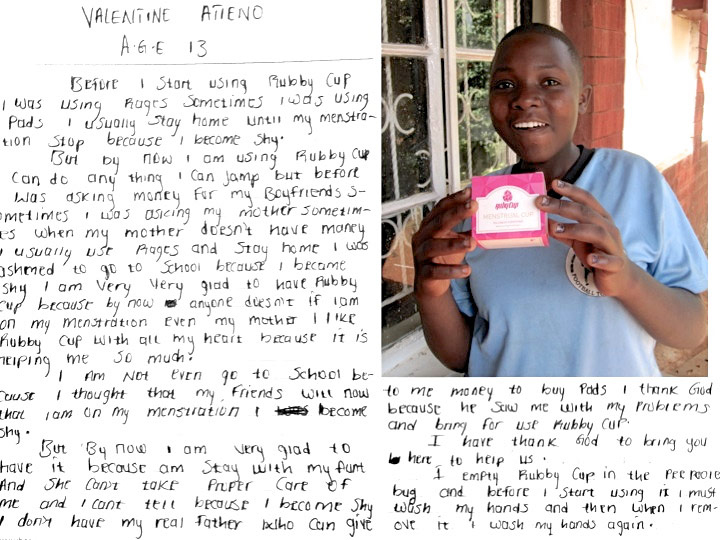 VALENTINE ATIENO
A.G.E 13
Before I start using Rubby Cup
I was using Rages Sometimes I was using
Pads I usually stay home until my menstra-
tion stop because I become shy.
But by now I am using Rubby Cup
Can do any thing I Can Jamp but before
I was asking money for my Boyfriends S-
ometimes I was asking my mother Sometim-
es when my mother doesn't have money
I usually use Rages and stay home I was
ashemed to go to School because I became
shy I am Very Very glad to have Rubby
Cup because by now anyone doesn't if I am
on my menstration even my mother I like
Rubby Cup with all my heart because it is
helping me so much.
I Am Not even go to School be-
cause I thought that my friends will now
that I am on my menstration I become
shy.
But By now I am very glad to
have it because am stay with my Aunt
And She Can't take Proper Care of
me and I Cant tell because I become shy
I don't have my real Father who Can give
to me money to buy Pads I thank God
because he Saw me with my Problems
and bring for use Rubby Cup.
I have thank God to bring you
here to help us.
I empty Rubby Cup in the
bug and before I start using it I must
wash my hands and then when I rem-
ove it I wash my hands again.
rubycup
MENSTRUAL CUP
FOOTBALL